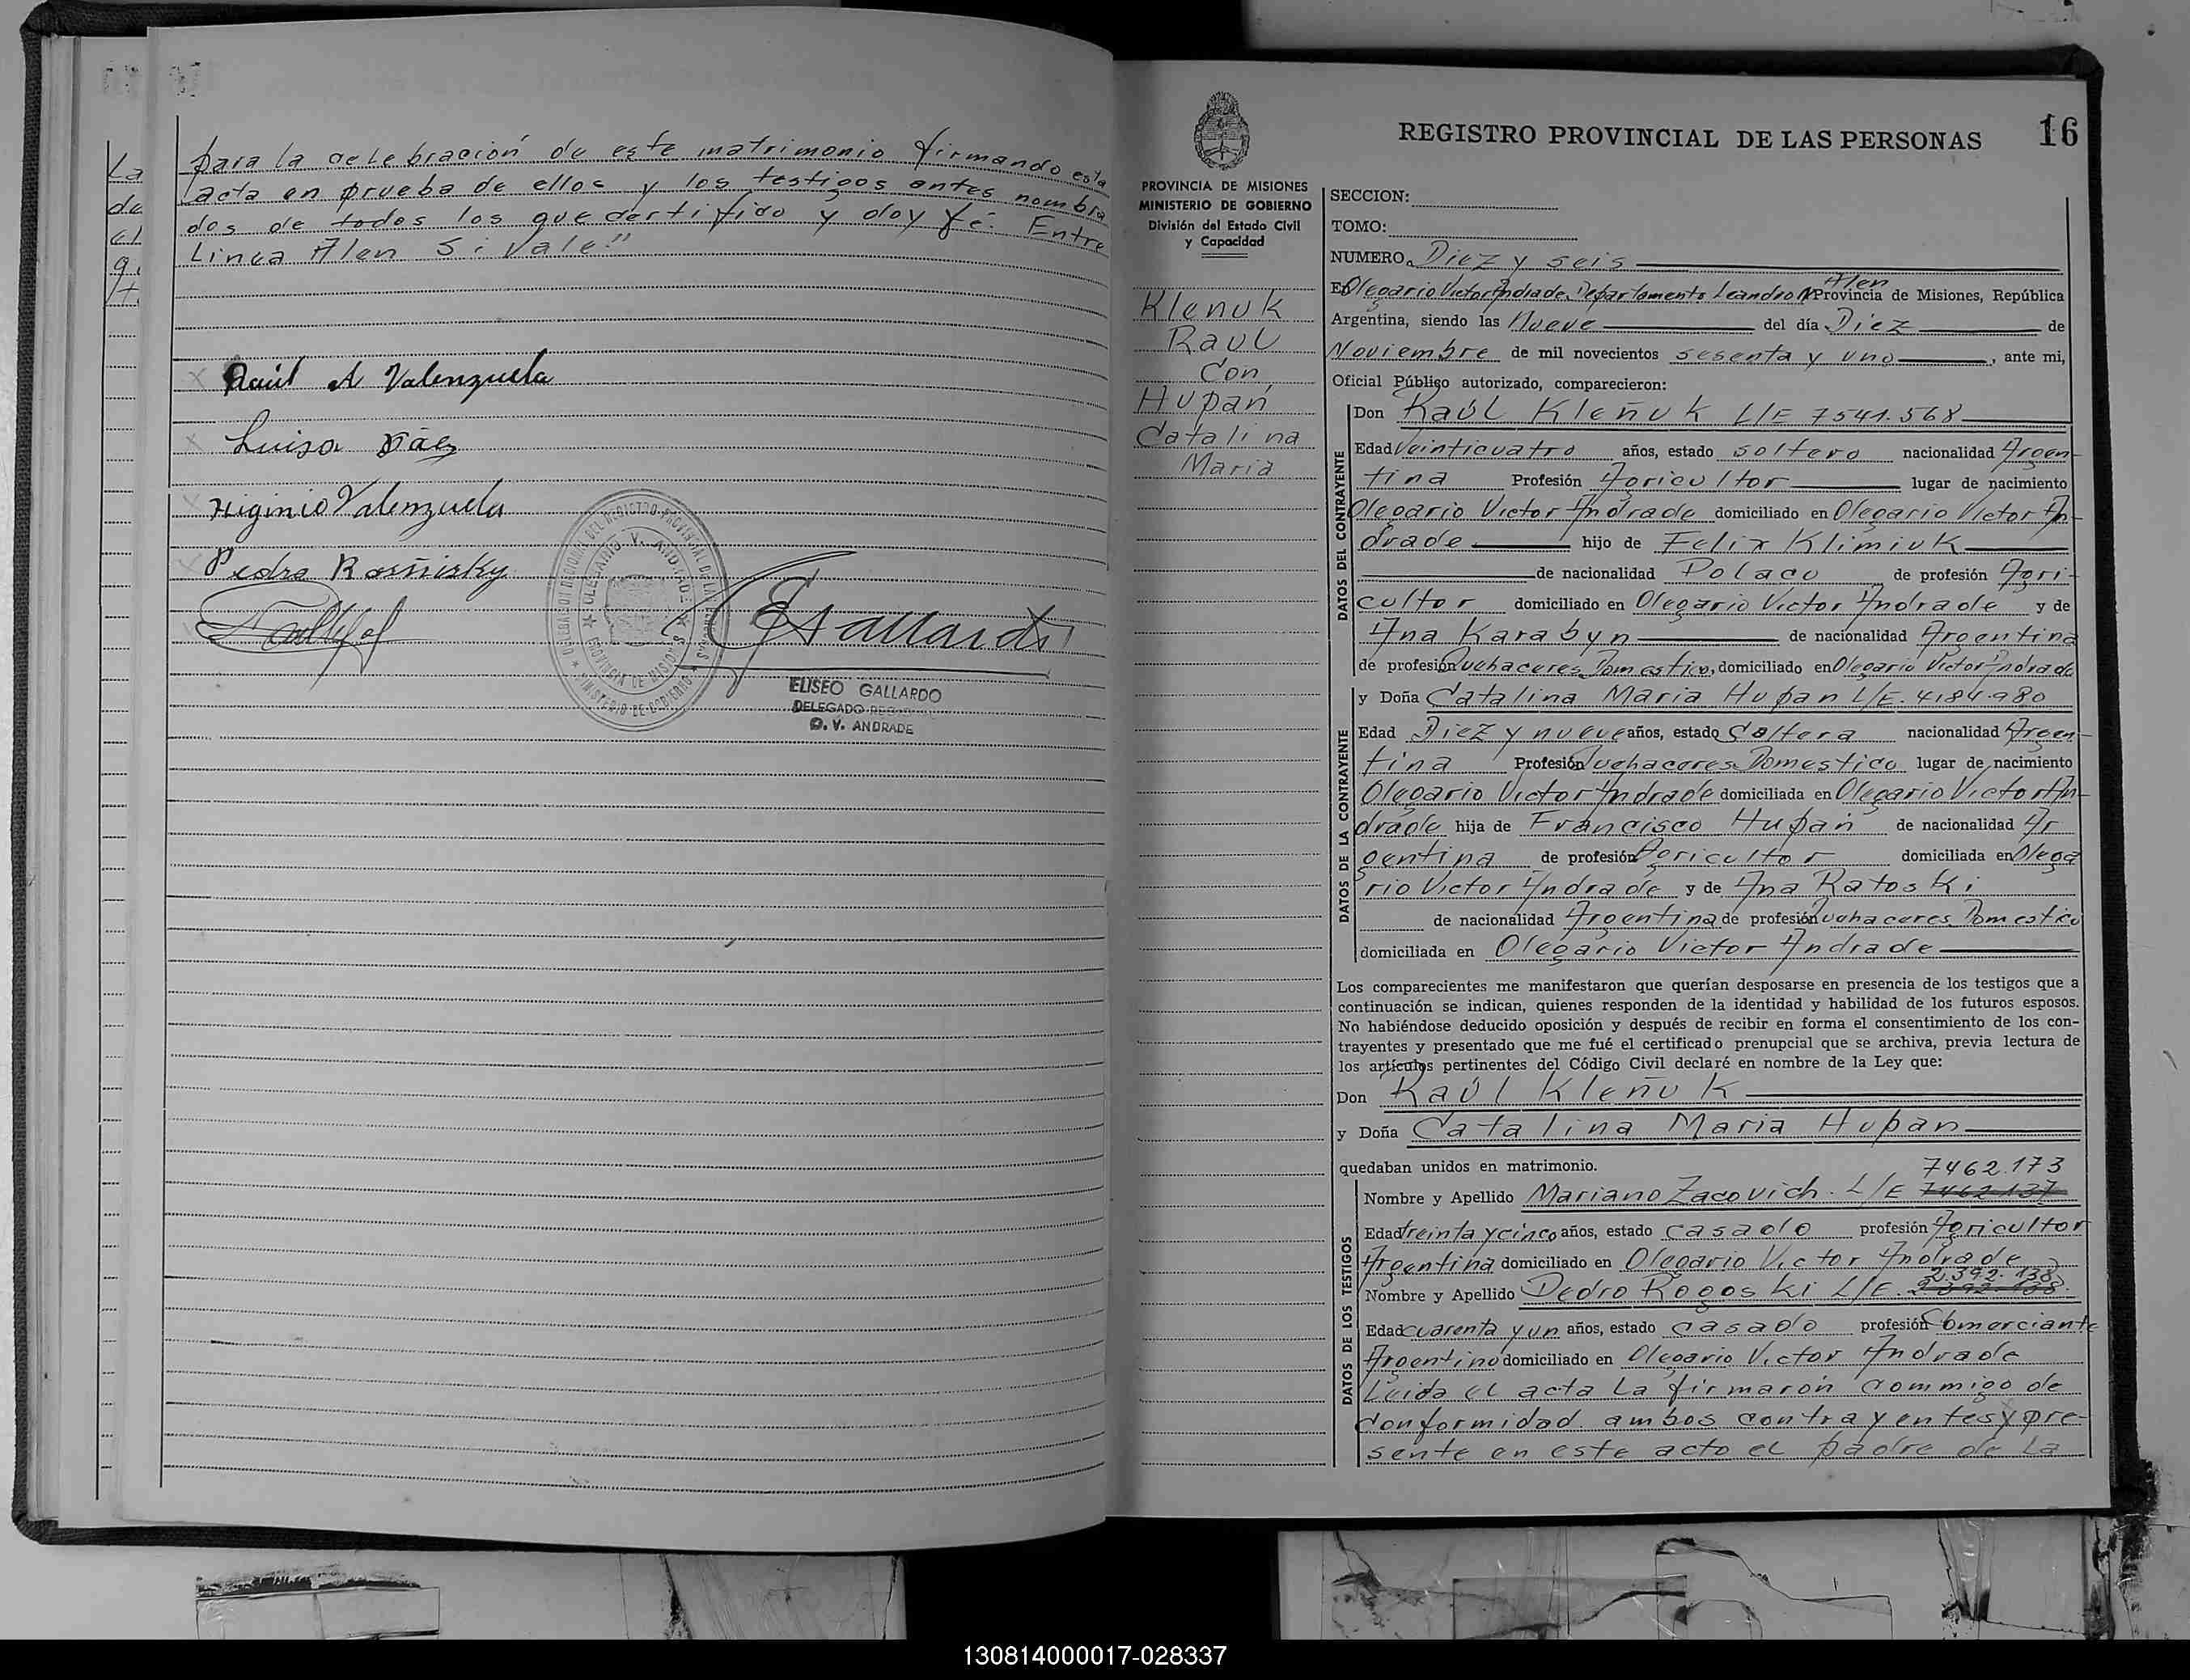 para la celebración de este matrimonio firmando esta
acta en prueba de ellos y los testigos antes nombra
dos de todos los que certifico y doy fé. Entre
Linea Alen Si Vale."
Raúl A Valenzuela
Luisa Báez
Higinio Valenzuela
Pedro
ELISEO GALLARDO
DELEGADO
O. V. ANDRADE
16
REGISTRO PROVINCIAL DE LAS PERSONAS
PROVINCIA DE MISIONES
MINISTERIO DE GOBIERNO
División del Estado Civil
y Capacidad
Klenuk
Raul
Con
Hupan
Catalina
Maria
SECCION:
TOMO:
NUMERO Diez y seis
Alen
En Olegario Victor Andrade, Departamento Leandro N Provincia de Misiones, República
Argentina, siendo las Nueve del día Diez de
Noviembre de mil novecientos sesenta y uno, ante mi,
Oficial Público autorizado, comparecieron:
DATOS DEL CONTRAYENTE
Don Raúl Kleñuk L/E 7541.568
Edad Veinticuatro años, estado soltero nacionalidad Argen-
tina Profesión Agricultor lugar de nacimiento
Olegario Victor Andrade domiciliado en Olegario Victor An-
drade hijo de Felix Klimiuk
de nacionalidad Polaco de profesión Agri-
cultor domiciliado en Olegario Victor Andrade y de
Ana Karabyn de nacionalidad Argentina
de profesión Quehaceres Domestico, domiciliado en Olegario Victor Andrade
DATOS DE LA CONTRAYENTE
y Doña Catalina Maria Hupan L/E. 4184.980
Edad Diez y nueve años, estado Soltera nacionalidad Argen-
tina Profesión Quehaceres Domestico lugar de nacimiento
Olegario Victor Andrade domiciliada en Olegario Victor An-
drade hija de Francisco Hupan de nacionalidad Ar
gentina de profesión Agricultor domiciliada en Olega
rio Victor Andrade y de Ana Ratoski
de nacionalidad Argentina de profesión Quehaceres Domestico
domiciliada en Olegario Victor Andrade
Los comparecientes me manifestaron que querían desposarse en presencia de los testigos que a
continuación se indican, quienes responden de la identidad y habilidad de los futuros esposos.
No habiéndose deducido oposición y después de recibir en forma el consentimiento de los con-
trayentes y presentado que me fué el certificado prenupcial que se archiva, previa lectura de
los artículos pertinentes del Código Civil declaré en nombre de la Ley que:
Don Raúl Kleñuk
y Doña Catalina Maria Hupan
quedaban unidos en matrimonio.
7462.173
DATOS DE LOS TESTIGOS
Nombre y Apellido Mariano Zacovich. L/E 7462.137
Edad treinta y cinco años, estado casado profesión Agricultor
Argentina domiciliado en Olegario Victor Andrade
2.392.138
Nombre y Apellido Pedro Rogoski L/E.
Edad cuarenta y un años, estado casado profesión Comerciante
Argentino domiciliado en Olegario Victor Andrade
Leida el acta la firmarón commigo de
conformidad ambos contrayentes y pre-
sente en este acto el padre de la
130814000017-028337